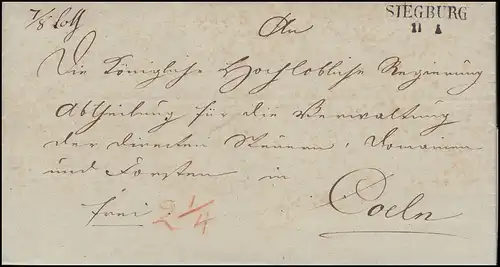 7/8 Loth
SIEGBURG
11 4
An
Die Königliche Hochlobliche Regierung
Abtheilung für die Verwaltung
der directen Steuern, Domainen
und Forsten in
Coeln
frei
2 1/4